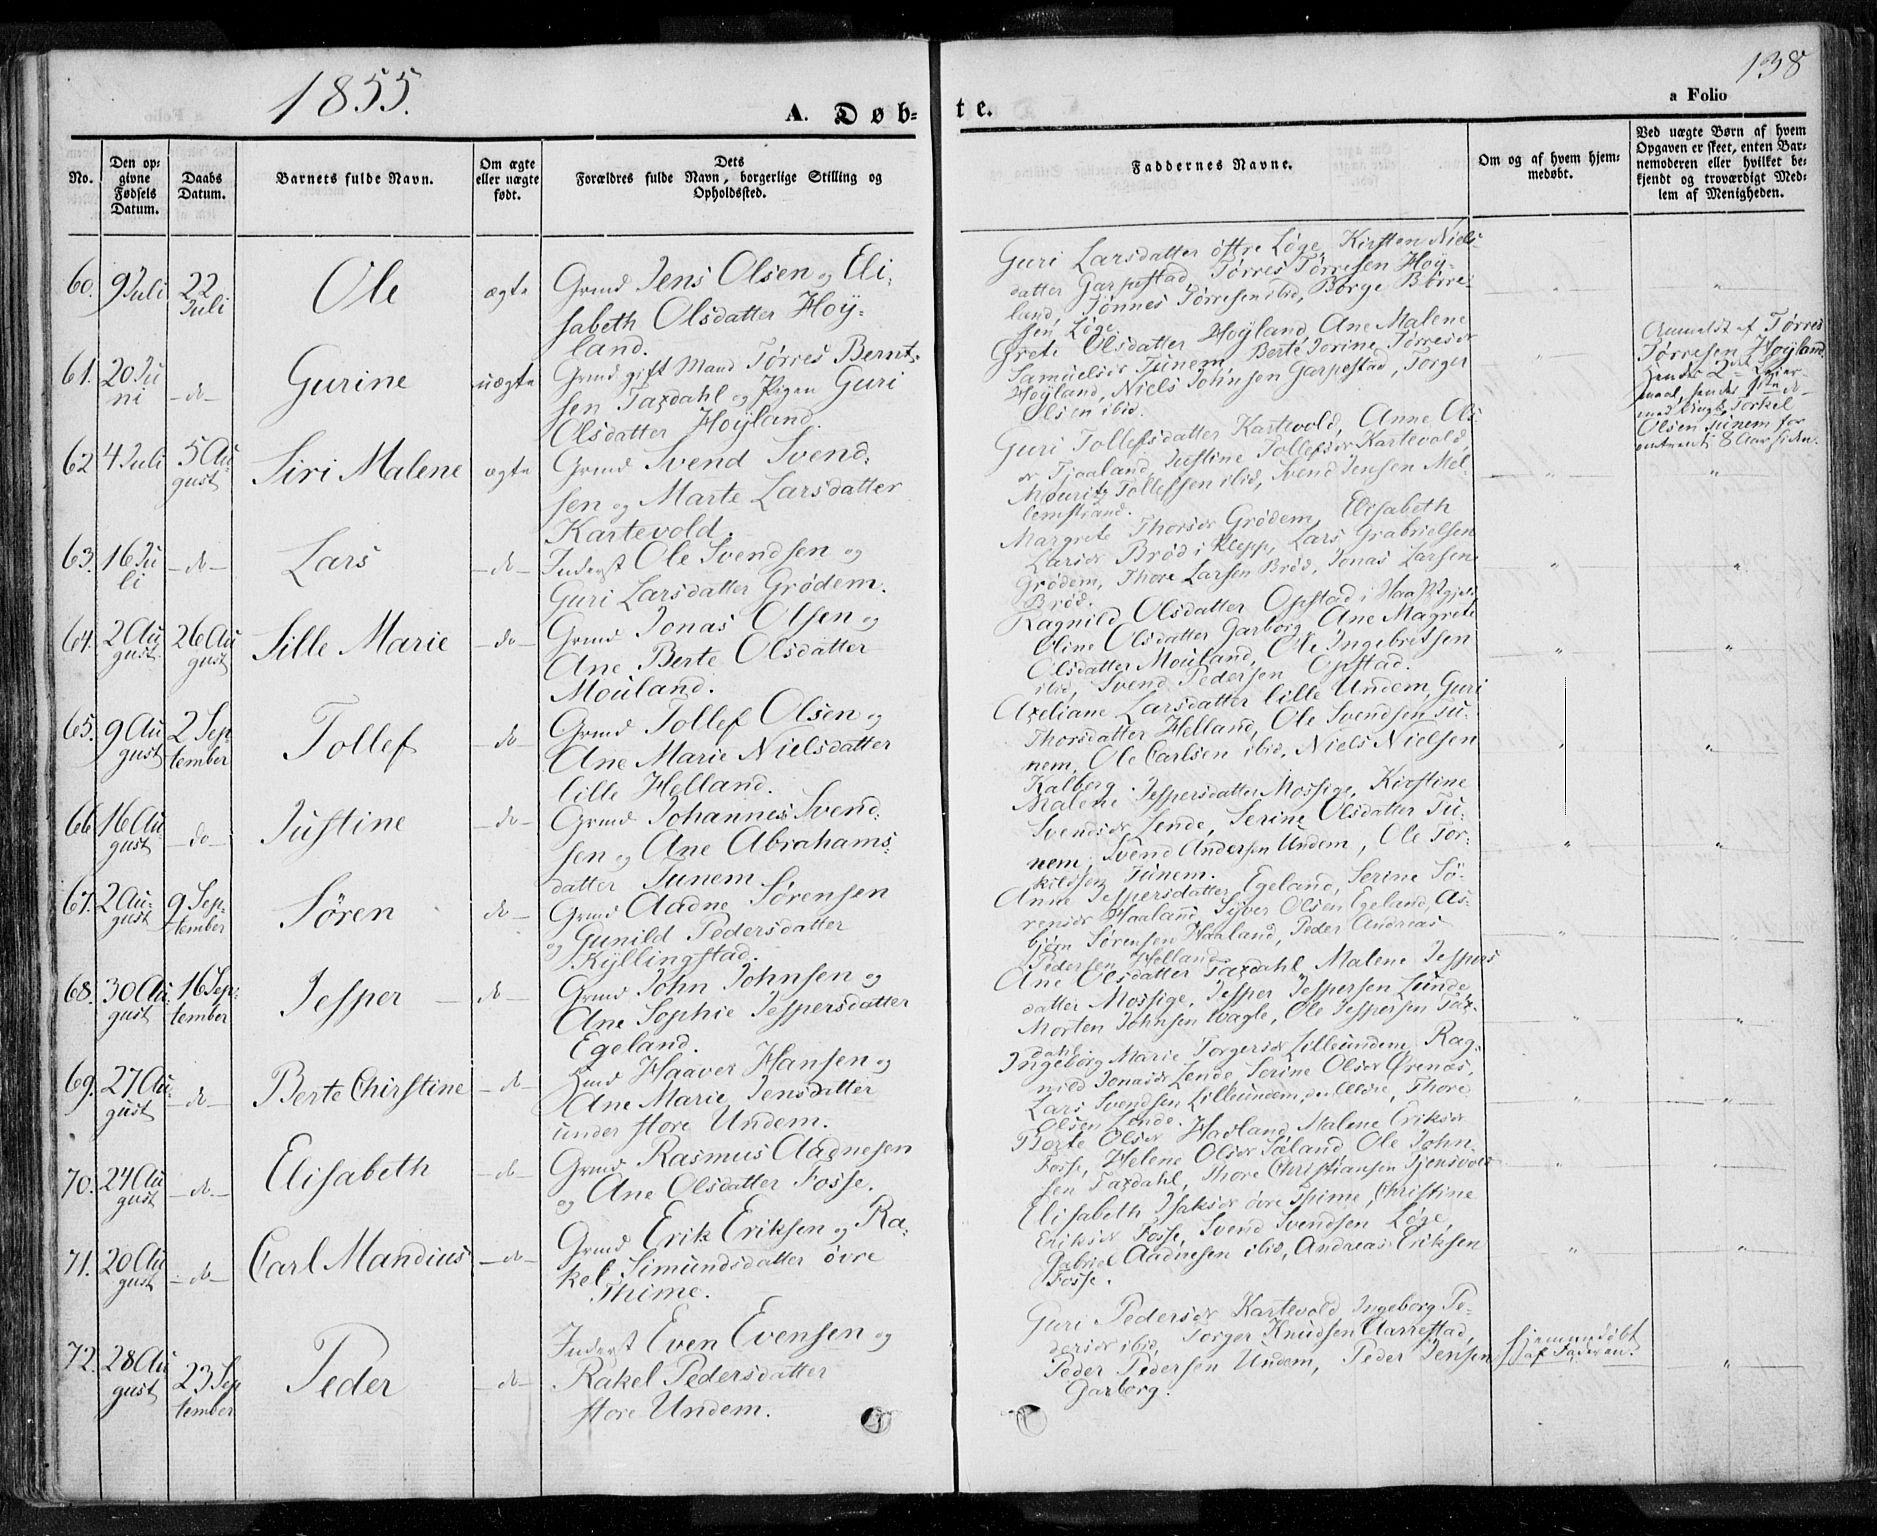 1855.
138
A. Døb-
te.
a Folio
No.
Den op-
givne
Fødsels
Datum.
Daabs
Datum.
Barnets fulde Navn.
Om ægte
eller uægte
født.
Dets
Forældres fulde Navn, borgerlige Stilling og
Opholdssted.
Faddernes Navne.
Om og af hvem hjem-
medøbt.
Ved uægte Børn af hvem
Opgaven er skeet, enten Bar-
nemoderen eller hvilket be-
kjendt og troværdigt Med-
lem af Menigheden.
60. 9 Juli 22 Juli Ole ægte
Grmd Jens Olsen og Eli-
sabeth Olsdatter Höy-
land.
Guri Larsdatter östre Löge, Kirsten Niels-
datter Garpestad, Törres Törresen Höy-
land, Tönnes Törresen ibid, Börge Börre-
sen Löge.
61. 20 Juni do Gurine uægte
Grmd gift Mand Törres Bernt-
sen Taxdahl og Pigen Guri
Olsdatter Höyland.
Grete Olsdatter Höyland, Ane Malene
Samuelsdr Tunem, Berte Jorine Törresdr
Höyland, Niels Johnsen Garpestad, Torger
Olsen ibid.
Anmeldt af Törres
Törresen Höyland
Hendes 2det Leier-
maal, hendes 1ste
med Ungk. Torkel
Olsen Tunem for
omtrent 8 Aar siden.
62 4 Juli 5 August Siri Malene ægte
Grmd Svend Svend-
sen og Marte Larsdatter
Kartevold.
Guri Tollefsdatter Kartevold, Anne Ols
dr Tjaaland, Justine Tollefsdr Kartevold
Mouritz Tollefsen ibid, Svend Jensen Mel-
lemstrand.
63. 16 Juli do Lars do
Inderst Ole Svendsen og
Guri Larsdatter Grödem.
Margrete Thorsdr Grödem, Elisabeth
Larsdr Bröd i Klepp, Lars Gabrielsen
Grödem, Thore Larsen Bröd, Jonas Larsen
Bröd.
64. 2 August 26 August Sille Marie do
Grmd Jonas Olsen og
Ane Berte Olsdatter
Mouland.
Ragnild Olsdatter Opstad i Haa Pgjeld
Oline Olsdatter Garborg, Ane Magrete
Olsdatter Mouland, Ole Ingebretsen
ibid, Svend Pedersen Opstad.
65. 9 August 2 September Tollef do
Grmd Tollef Olsen og
Ane Marie Nielsdatter
lille Helland.
Axeliane Larsdatter lille Undem, Guri
Thorsdatter Helland, Ole Svendsen Tu-
nem, Ole Carlsen ibid, Niels Nielsen
Kalberg.
66 16 August do Justine do
Grmd Johannes Svend-
sen og Ane Abrahams-
datter Tunem.
Malene Jespersdatter Mossige, Kirstine
Svendsdr Lende, Serine Olsdatter Tu-
nem, Svend Andersen Undem, Ole Tor-
kildsen Tunem.
67. 2 August 9 September Sören do
Grmd Aadne Sörensen
og Gunild Pedersdatter
Kyllingstad.
Anne Jespersdatter Egeland, Serine Sö-
rensdr Haaland, Syver Olsen Egeland, As-
björn Sörensen Haaland, Peder Andreas
Pedersen Helland.
68. 30 August 16 September Jesper do
Grmd John Johnsen og
Ane Sophie Jespersdatter
Egeland.
Ane Olsdatter Taxdahl, Malene Jespers
datter Mossige, Jesper Jespersen Lunde,
Morten Johnsen Vagle, Ole Jespersen Tax-
dahl.
69. 27 August do Berte Chirstine do
Hmd Haaver Hansen og
Ane Marie Jensdatter
under store Undem.
Ingeborg Marie Torgersdr Lilleundem, Rag-
nild Jonasdr Lende, Serine Olsdr Örenæs,
Lars Svendsen Lilleundem, den Ældre, Thore
Olsen Lende.
70. 24 August do Elisabeth do
Grmd Rasmus Aadnesen
og Ane Olsdatter Fosse.
Berte Olsdr Haaland, Malene Eriksdr
Fosse, Helene Olsdr Saland, Ole John-
sen Taxdahl, Thore Christiansen Tjensvold
71. 20 August do Carl Mandius do
Grmd Erik Eriksen og Ra-
kel Simundsdatter övre
Thime.
Elisabeth Isaksdr övre Thime, Christine
Eriksdr Fosse, Svend Svendsen Löge,
Gabriel Aadnesen ibid, Andreas Eriksen
Fosse.
72. 28 August 23 September Peder do
Inderst Even Evensen og
Rakel Pedersdatter
store Undem.
Guri Pedersdr Kartevold, Ingeborg Pe-
dersdr ibid, Torger Knudsen Aarrestad,
Peder Pedersen Undem, Peder Jensen
Garborg.
hjemmedöbt
af Faderen.